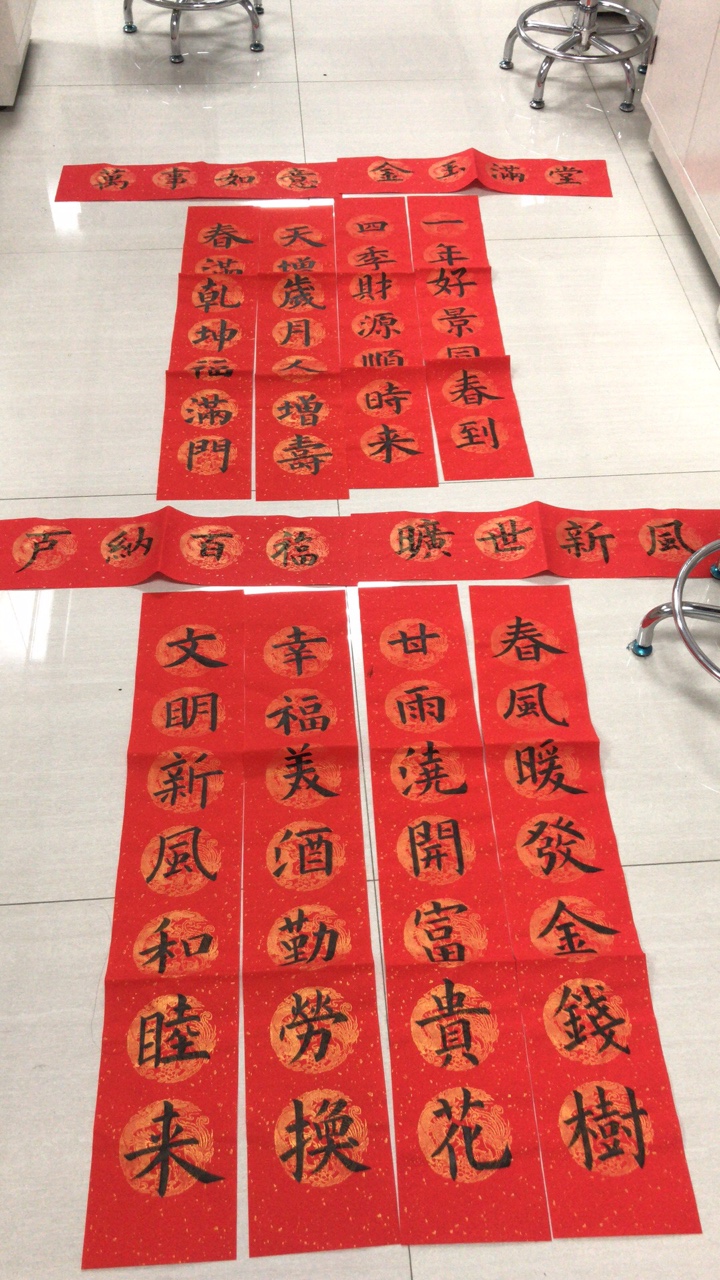 萬事如意
金玉滿堂
一年好景同春到
四季財源順時来
天增歲月人增壽
春滿乾坤福滿門
户納百福
曠世新風
春風暖發金錢樹
甘雨澆開富貴花
幸福美酒勤勞換
文明新風和睦来